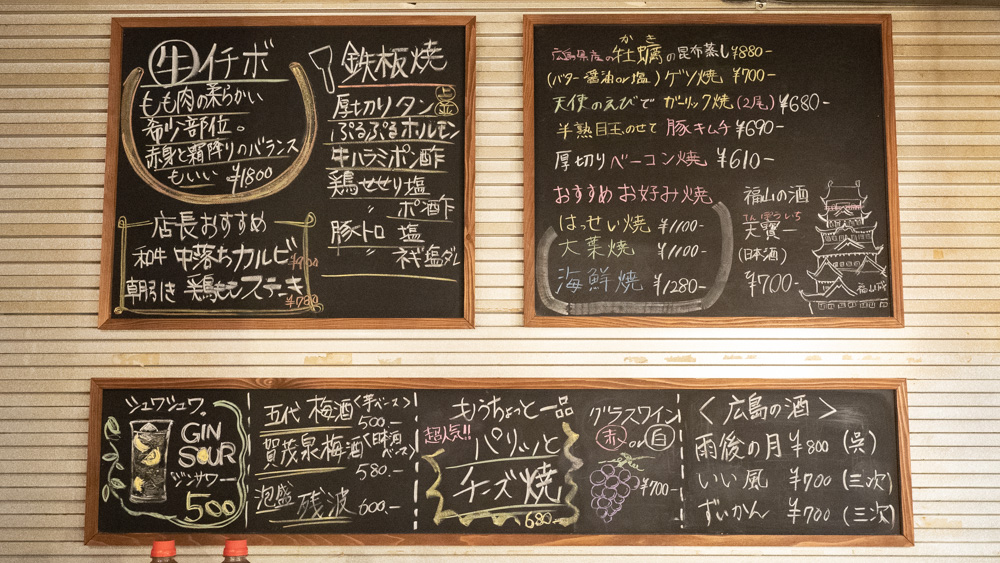 牛イチボ
もも肉の柔らかい
希少部位。
赤身と霜降りのバランス
もいい ¥1800
店長おすすめ
和牛 中落ちカルビ
朝引き 鶏ももステーキ ¥780
鉄板焼
厚切りタン 上 並
ぷるぷるホルモン
牛ハラミポン酢
鶏せせり塩
〃 ポン酢
豚トロ 塩
〃 ネギ塩ダレ
かき
広島県産の牡蠣の昆布蒸し¥880-
(バター醤油or塩)ゲソ焼 ¥700-
天使のえびで ガーリック焼(2尾)¥680-
半熟目玉のせて 豚キムチ ¥690-
厚切りベーコン焼 ¥610-
おすすめお好み焼
はっせい焼 ¥1100-
大葉焼 ¥1100-
海鮮焼 ¥1280-
福山の酒
てんぽういち
天寶一
(日本酒)
¥700-
福山城
シュワシュワ。
GIN
SOUR
ジンサワー
500
五代 梅酒〈芋ベース〉
500.-
賀茂泉梅酒〈日本酒ベース〉
580.-
泡盛 残波 600.-
もうちょっと一品
超人気!!
パリッと
チーズ焼
680-
グラスワイン
赤 or 白
¥700-
〈広島の酒〉
雨後の月 ¥800 (呉)
いい風 ¥700 (三次)
ずいかん ¥700 (三次)